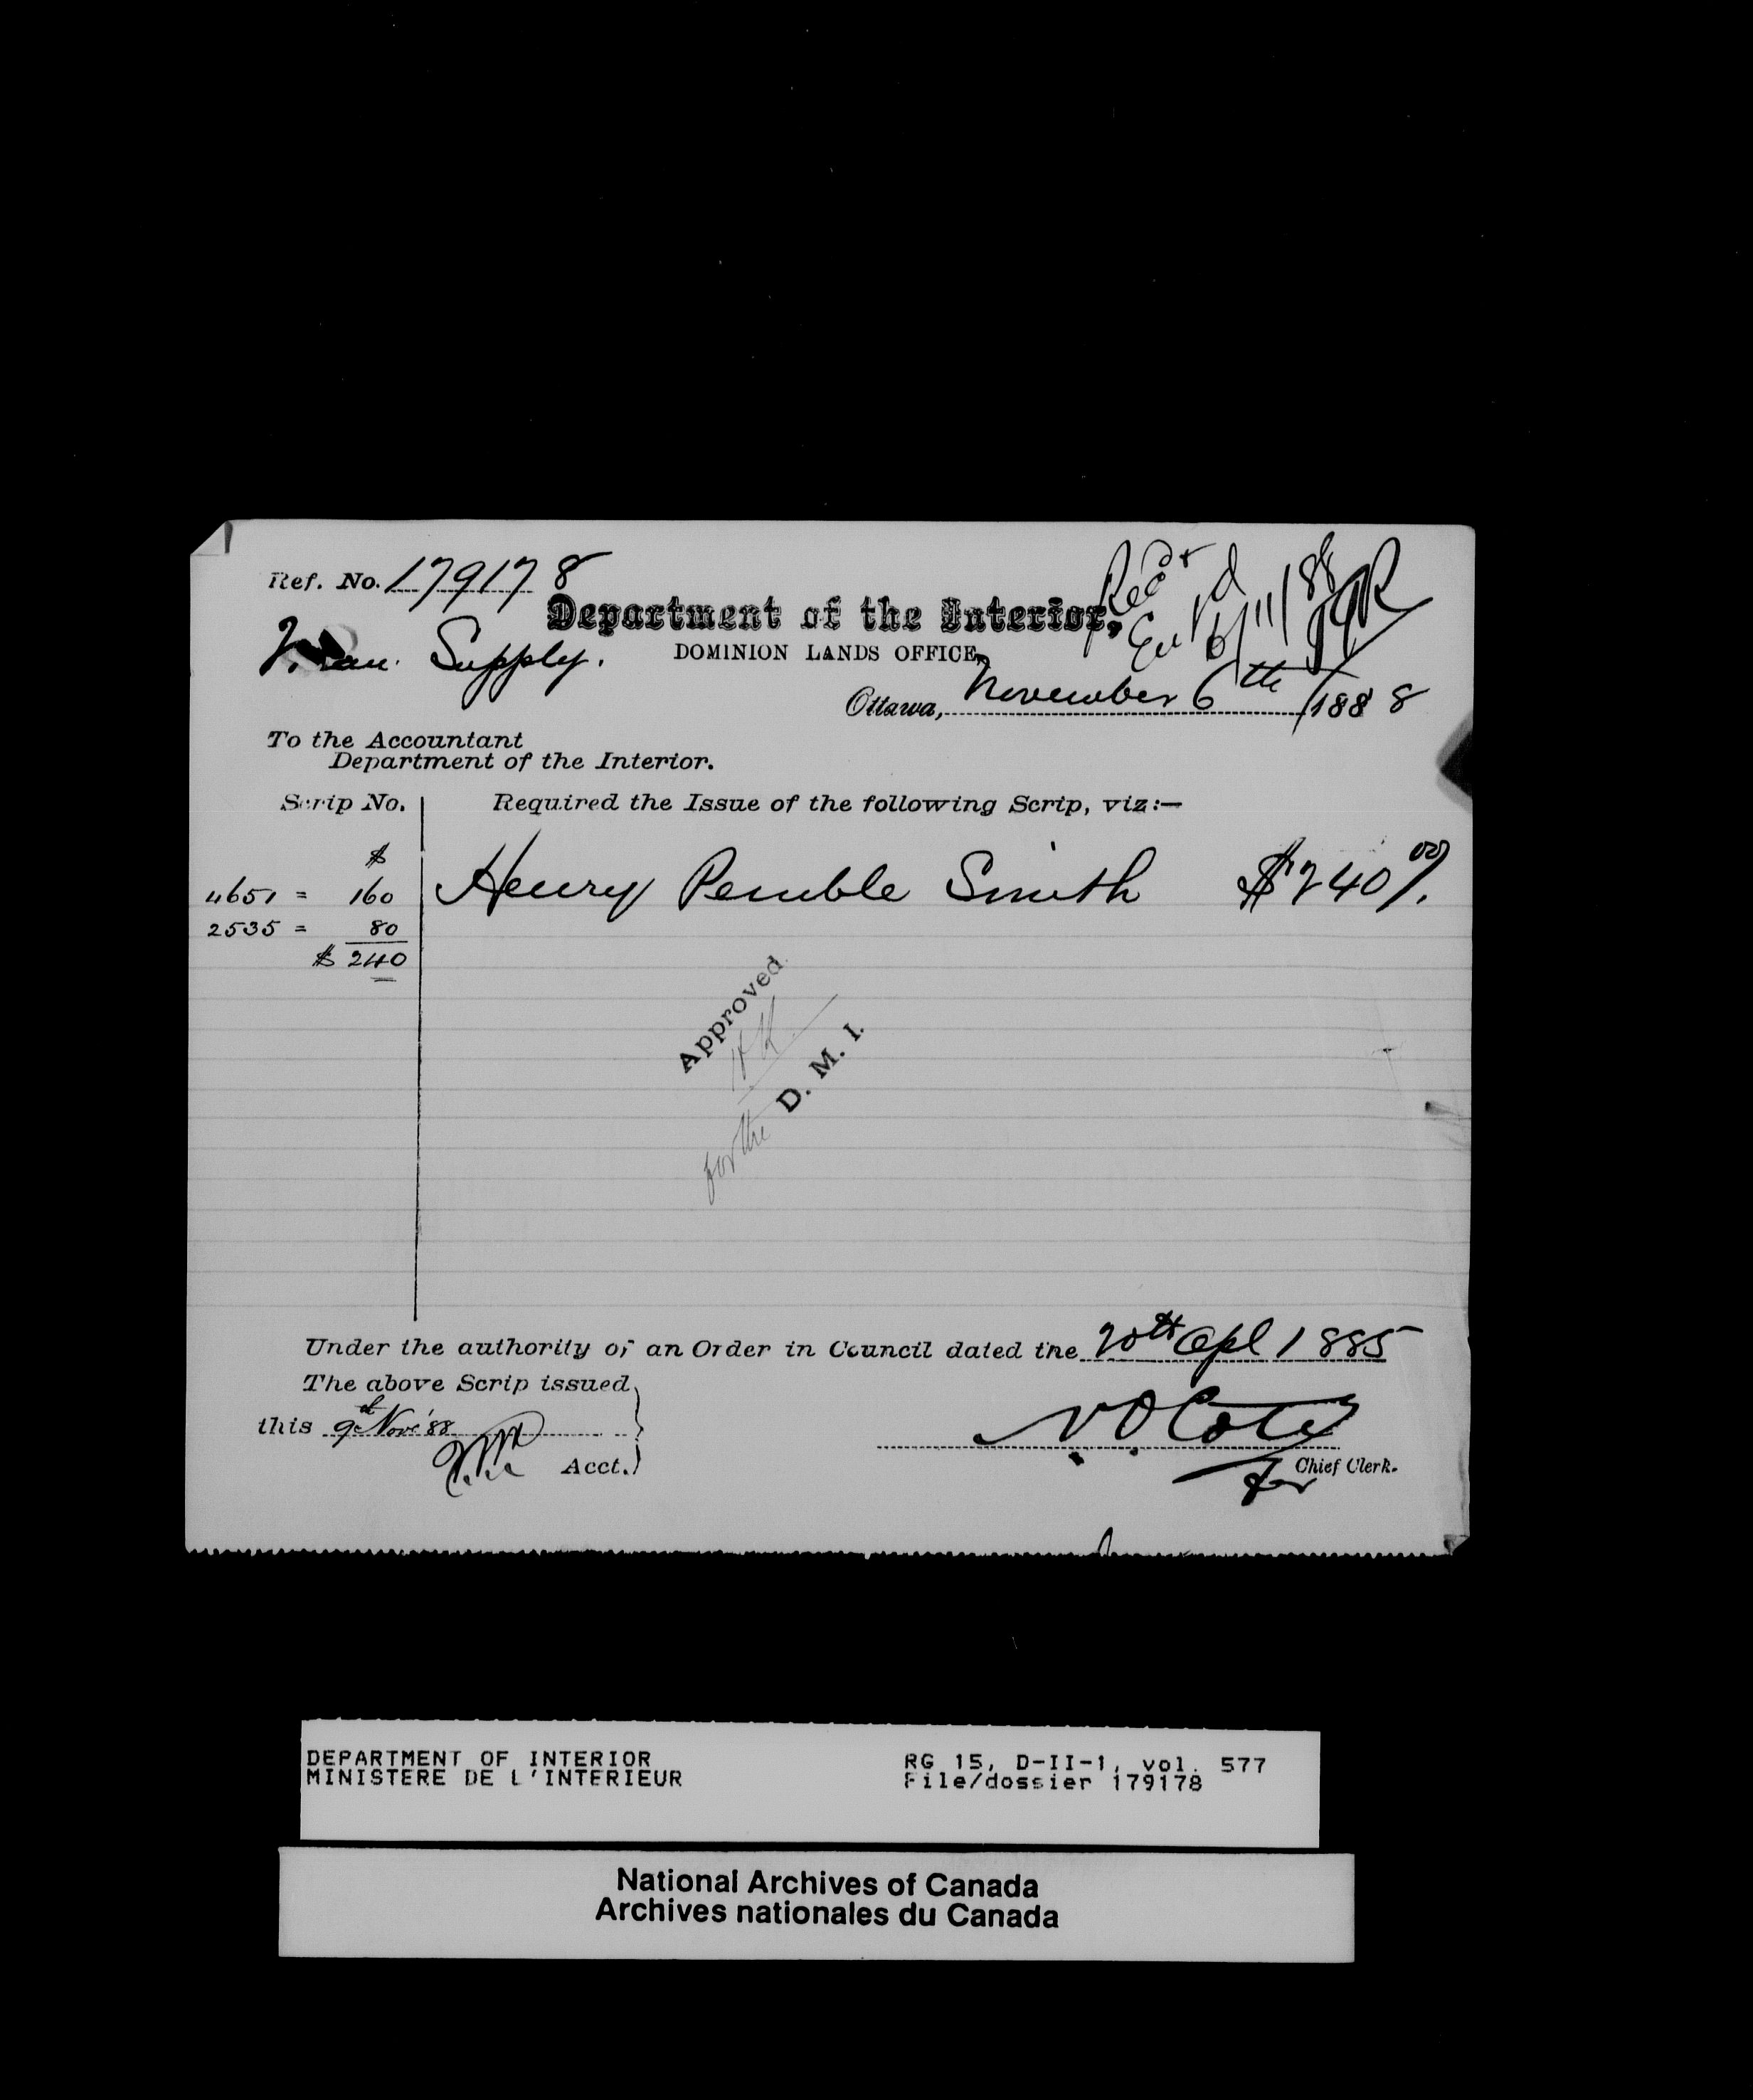 Ref. No. 179178
Rec'd
6/11/88
Department of the Interior,
Supply.
DOMINION LANDS OFFICE,
Ottawa, November 6th 1888
To the Accountant
Department of the Interior.
Scrip No. Required the Issue of the following Scrip, viz:—
$
4651 = 160 Henry Pemble Smith $240 00/.
2535 = 80
$ 240
Approved
for the D. M. I.
Under the authority of an Order in Council dated the 20th Apl 1885
The above Scrip issued
this 9th Nov '88
N. O. Coté
Acct.
for Chief Clerk.
DEPARTMENT OF INTERIOR
MINISTERE DE L'INTERIEUR
RG 15, D-II-1, vol. 577
File/dossier 179178
National Archives of Canada
Archives nationales du Canada